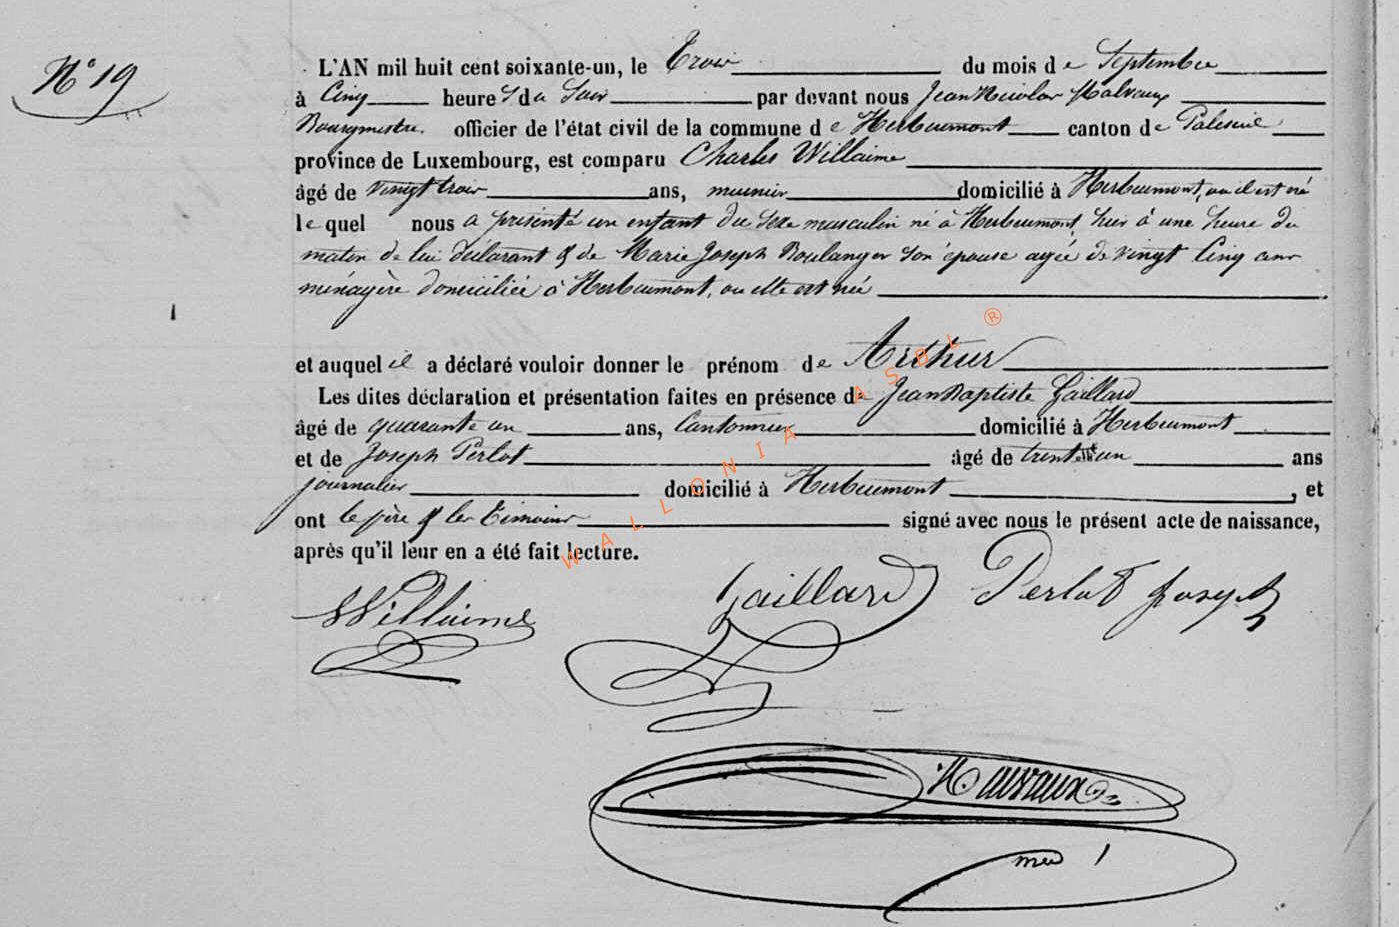 N° 19
L'AN mil huit cent soixante-un, le Trois du mois de Septembre
à Cinq heures du Soir par devant nous Jean Nicolas Malvaux
Bourgmestre officier de l'état civil de la commune de Herbeumont canton de Paliseul
province de Luxembourg, est comparu Charles Willaime
âgé de vingt trois ans, meunier domicilié à Herbeumont, ou il est né
lequel nous a présenté un enfant du sexe masculin né à Herbeumont, hier à une heure du
matin de lui déclarant & de Marie Joseph Boulanger son épouse agée de vingt Cinq ans
ménagère domiciliée à Herbeumont, ou elle est née
et auquel il a déclaré vouloir donner le prénom de Arthur
Les dites déclaration et présentation faites en présence de Jean Baptiste Gaillard
âgé de quarante un ans, Cantonnier domicilié à Herbeumont
et de Joseph Perlot âgé de trente un ans
journalier domicilié à Herbeumont, et
ont le père & les témoins signé avec nous le présent acte de naissance,
après qu'il leur en a été fait lecture.
Willaime Gaillard Perlot Joseph
Malvaux
WALLONIA ASBL ®